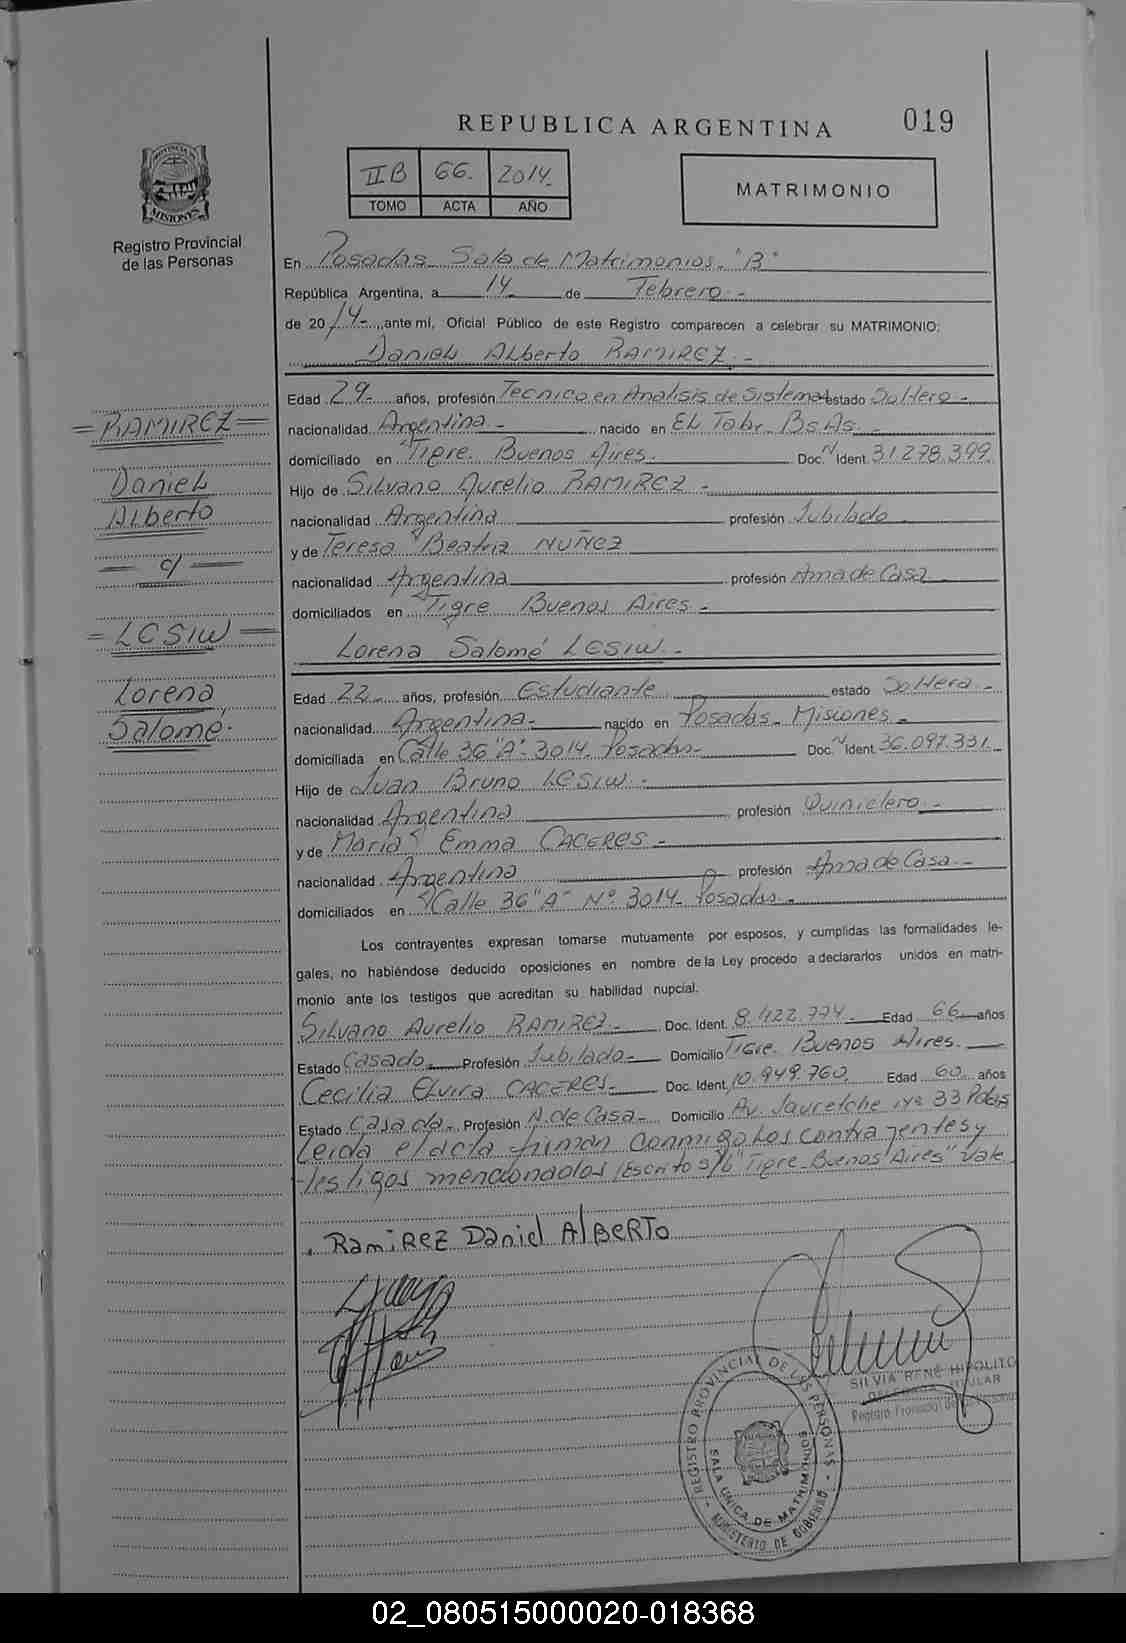 REPUBLICA ARGENTINA 019
PROVINCIA DE MISIONES
Registro Provincial
de las Personas
II B 66. 2014.-
TOMO ACTA AÑO
MATRIMONIO
En Posadas Sala de Matrimonios. "B"
República Argentina, a 14 de Febrero.-
de 20 14- ,ante mí, Oficial Público de este Registro comparecen a celebrar su MATRIMONIO:
Daniel Alberto RAMIREZ.-
Edad 29.- años, profesión Tecnico en Analisis de Sistemas estado Soltero.-
nacionalidad Argentina.- nacido en EL Bs.As.-
domiciliado en Tigre. Buenos Aires.- Doc. N Ident. 31.278.399.
Hijo de Silvano Aurelio RAMIREZ.-
nacionalidad Argentina profesión Jubilado
y de Teresa Beatriz NUÑEZ
nacionalidad Argentina profesión Ama de Casa
domiciliados en Tigre Buenos Aires.-
Lorena Salomé LESIW.-
Edad 22.- años, profesión Estudiante estado Soltera.-
nacionalidad Argentina.- nacido en Posadas. Misiones.-
domiciliada en Calle 36 "A"- 3014. Posadas.- Doc. N Ident. 36.097.331.-
Hijo de Juan Bruno LESIW.-
nacionalidad Argentina profesión Quinielero.-
y de Maria Emma CACERES.-
nacionalidad Argentina profesión Ama de Casa.-
domiciliados en Calle 36 "A" Nº 3014- Posadas.-
Los contrayentes expresan tomarse mutuamente por esposos, y cumplidas las formalidades le-
gales, no habiéndose deducido oposiciones en nombre de la Ley procedo a declararlos unidos en matri-
monio ante los testigos que acreditan su habilidad nupcial.
Silvano Aurelio RAMIREZ.- Doc. Ident. 8.422.774.- Edad 66 años
Estado Casado.- Profesión Jubilado.- Domicilio Tigre. Buenos Aires.-
Cecilia Elvira CACERES.- Doc. Ident. 10.949.760. Edad 60 años
Estado Casada.- Profesión A. de Casa.- Domicilio Av. Jauretche Nº 33 Pdas
Leida el acta firman conmigo Los contrayentes y
testigos mencionados (Escrito s/b "Tigre-Buenos Aires" Vale
=RAMIREZ=
Daniel
Alberto
— c/ —
=LESIW=
Lorena
Salomé.
RAMIREZ Daniel AlBERTO
SILVIA RENÉ HIPOLITO
DELEGADA TITULAR
Registro Provincial de las Personas
REGISTRO PROVINCIAL DE LAS PERSONAS
SALA UNICA DE MATRIMONIOS
MINISTERIO DE GOBIERNO
02_080515000020-018368